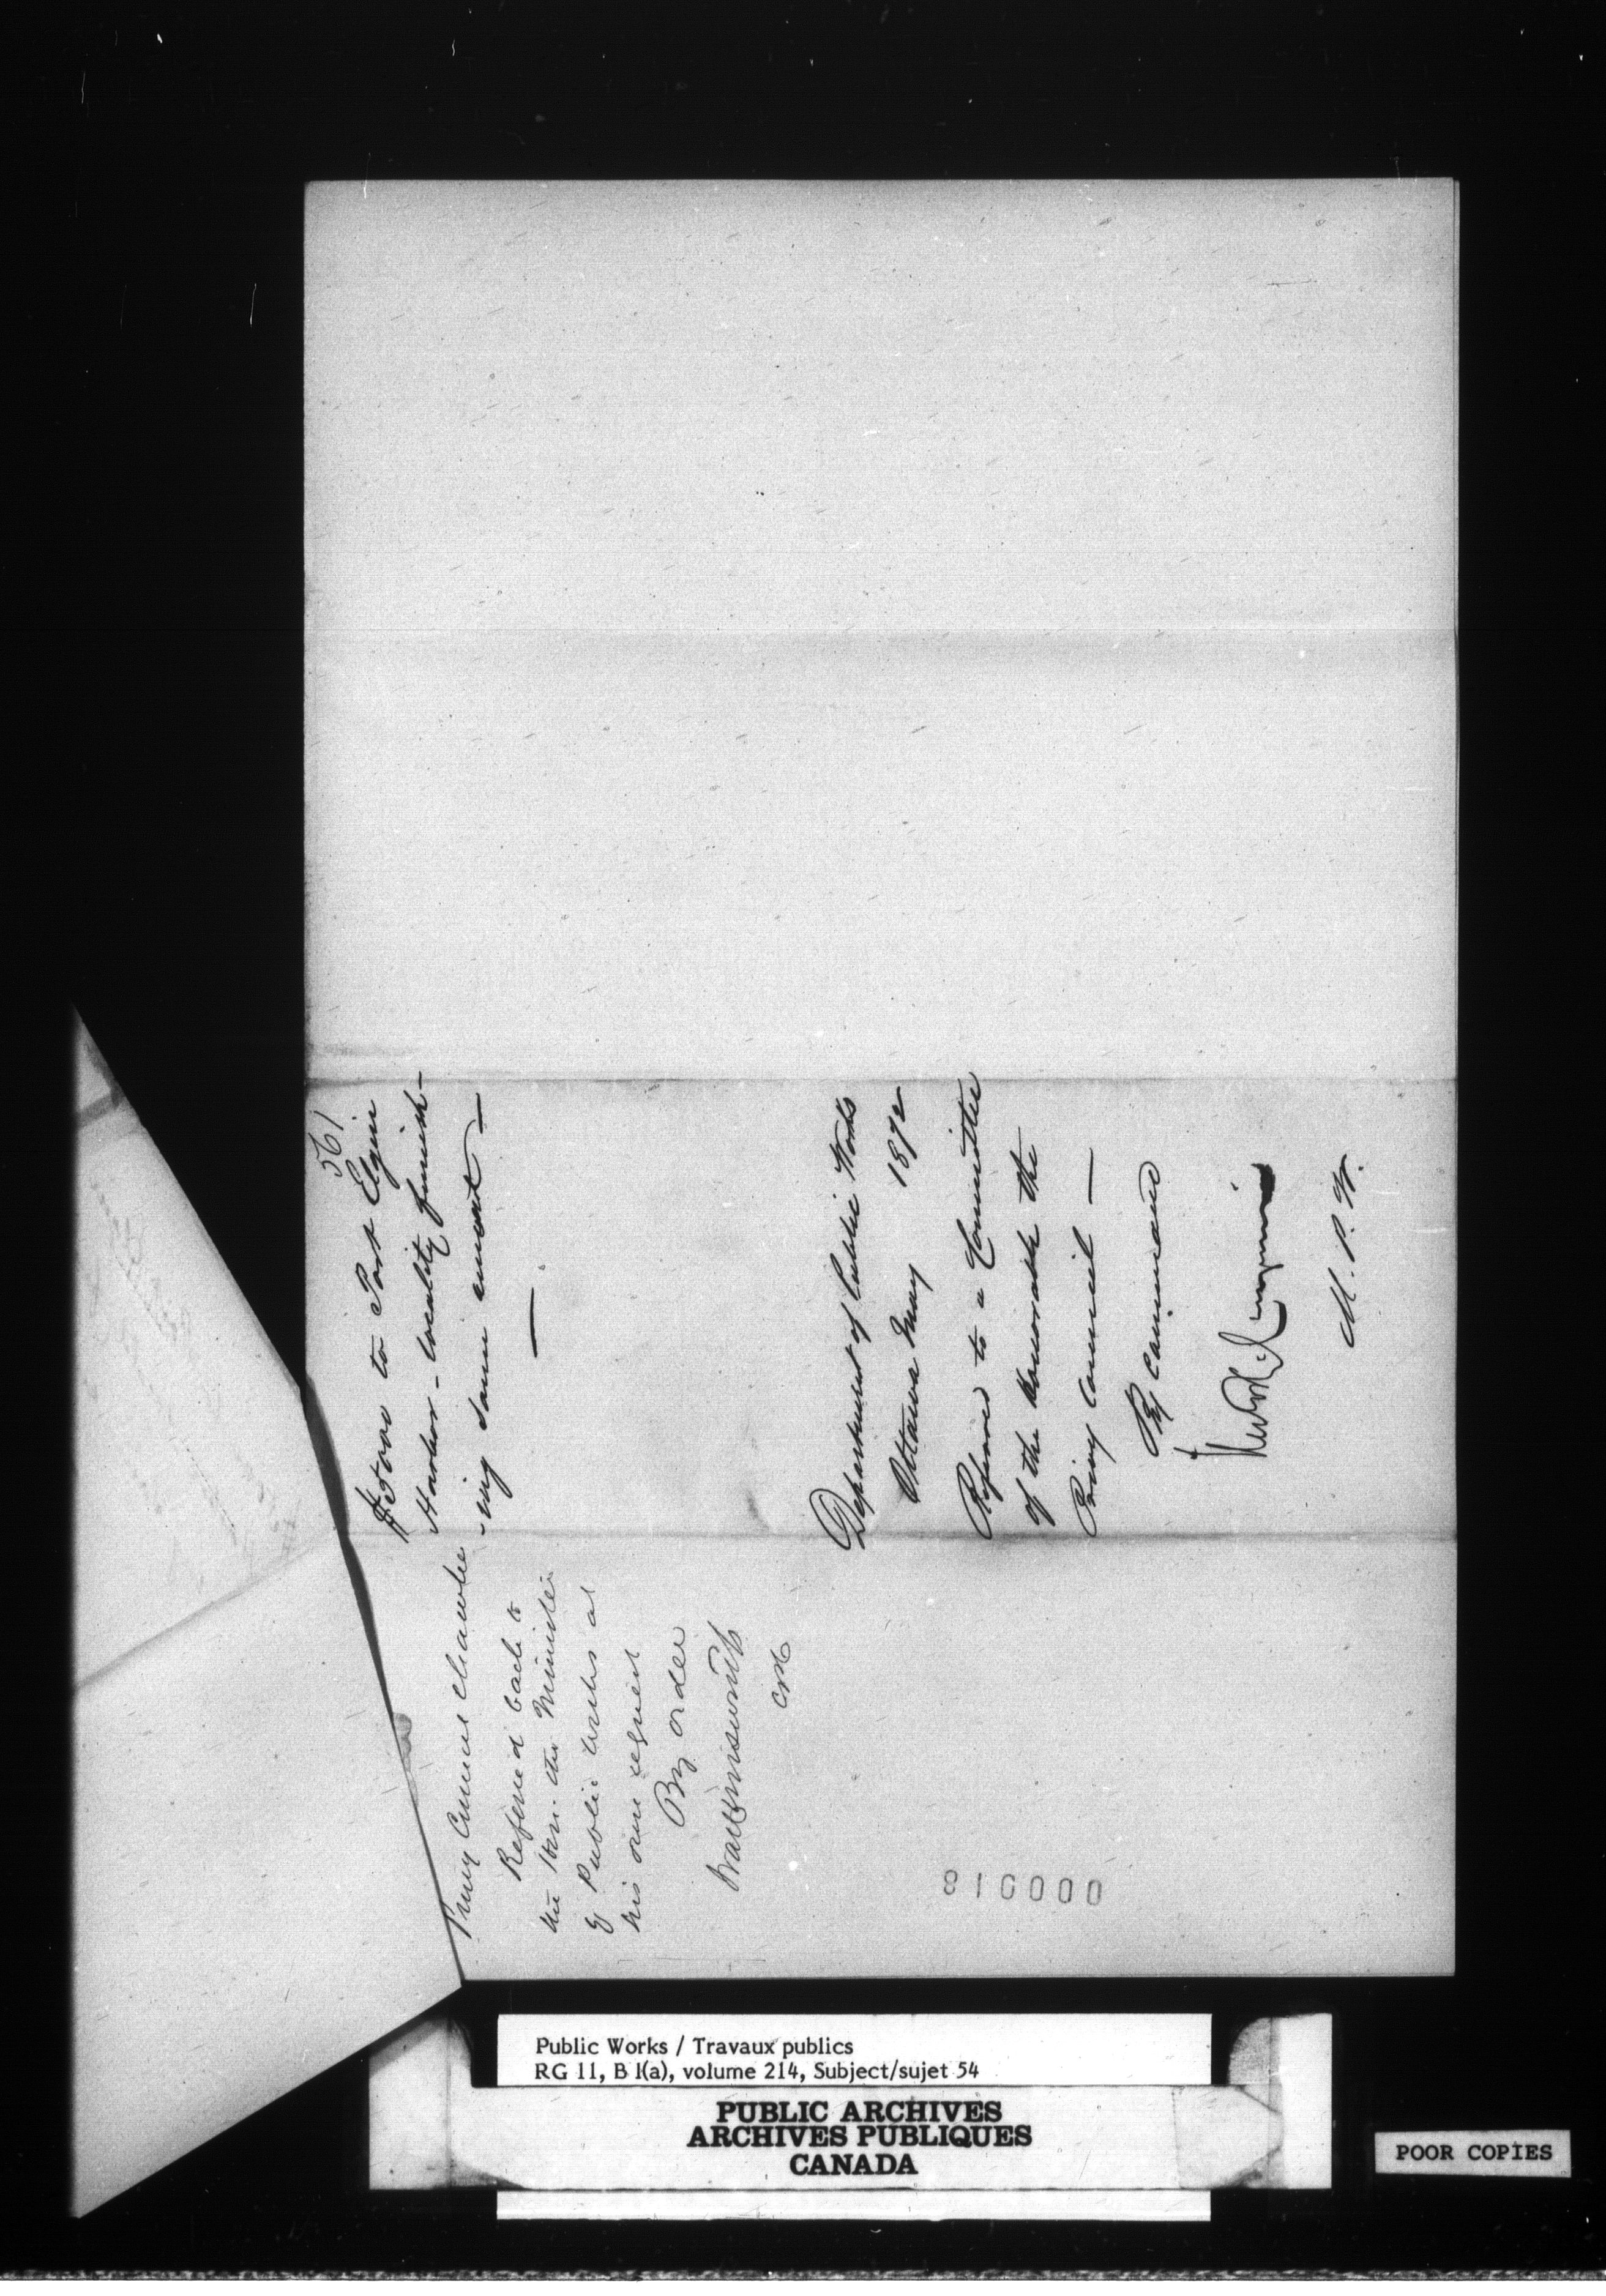 561
$5000 to Port Elgin
Harbor - locality furnish-
-ing same amount -
Department of Public Works
Ottawa May 1872
Referred to a Committee
of the Honorable the
Privy Council -
By Command
M. P. W.
Privy Council Chamber
Referred back to
the Hon. the Minister
of Public Works at
his own request
By order
CPC
810000
Public Works / Travaux publics
RG 11, B 1(a), volume 214, Subject/sujet 54
PUBLIC ARCHIVES
ARCHIVES PUBLIQUES
CANADA
POOR COPIES